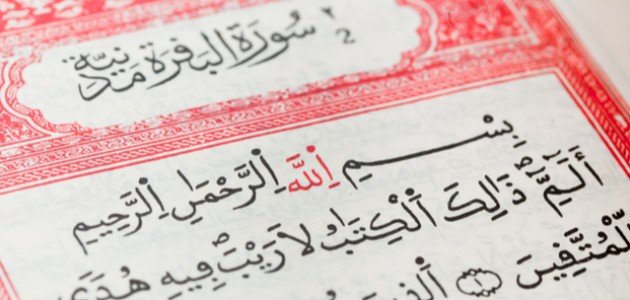 سُورَةُ البَقَرَةِ مَدَنِيَّة ٢ 2
بِسْمِ اِللَّهِ اِلرَّحْمَٰنِ اِلرَّحِيمِ
أَلَٓمِّٓ ذَٰلِكَ اَلْكِتَٰبُ لَا رَيْبَ فِيهِ هُدىً
لِّلْمُتَّقِينَ ١